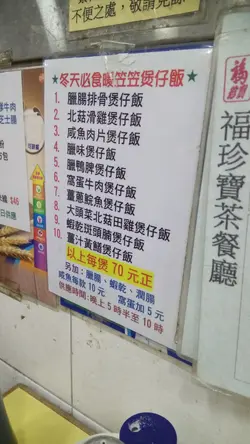 不便之處,敬請見
★冬天必食暖笠笠煲仔飯★
1. 臘腸排骨煲仔飯
2. 北菇滑雞煲仔飯
3. 咸魚肉片煲仔飯
4. 臘味煲仔飯
5. 臘鴨脾煲仔飯
6. 窩蛋牛肉煲仔飯
7. 薑蔥鯇魚煲仔飯
8. 大頭菜北菇田雞煲仔飯
9. 蝦乾斑頭腩煲仔飯
10. 薑汁黃鱔煲仔飯
以上每煲 70 元正
另加:臘腸、蝦乾、潤腸
咸魚每款 10 元 窩蛋加 5 元
供應時間:晚上 5 時半至 10 時
牛肉
芝士腸
$46
日供應
福
福珍寶茶餐廳